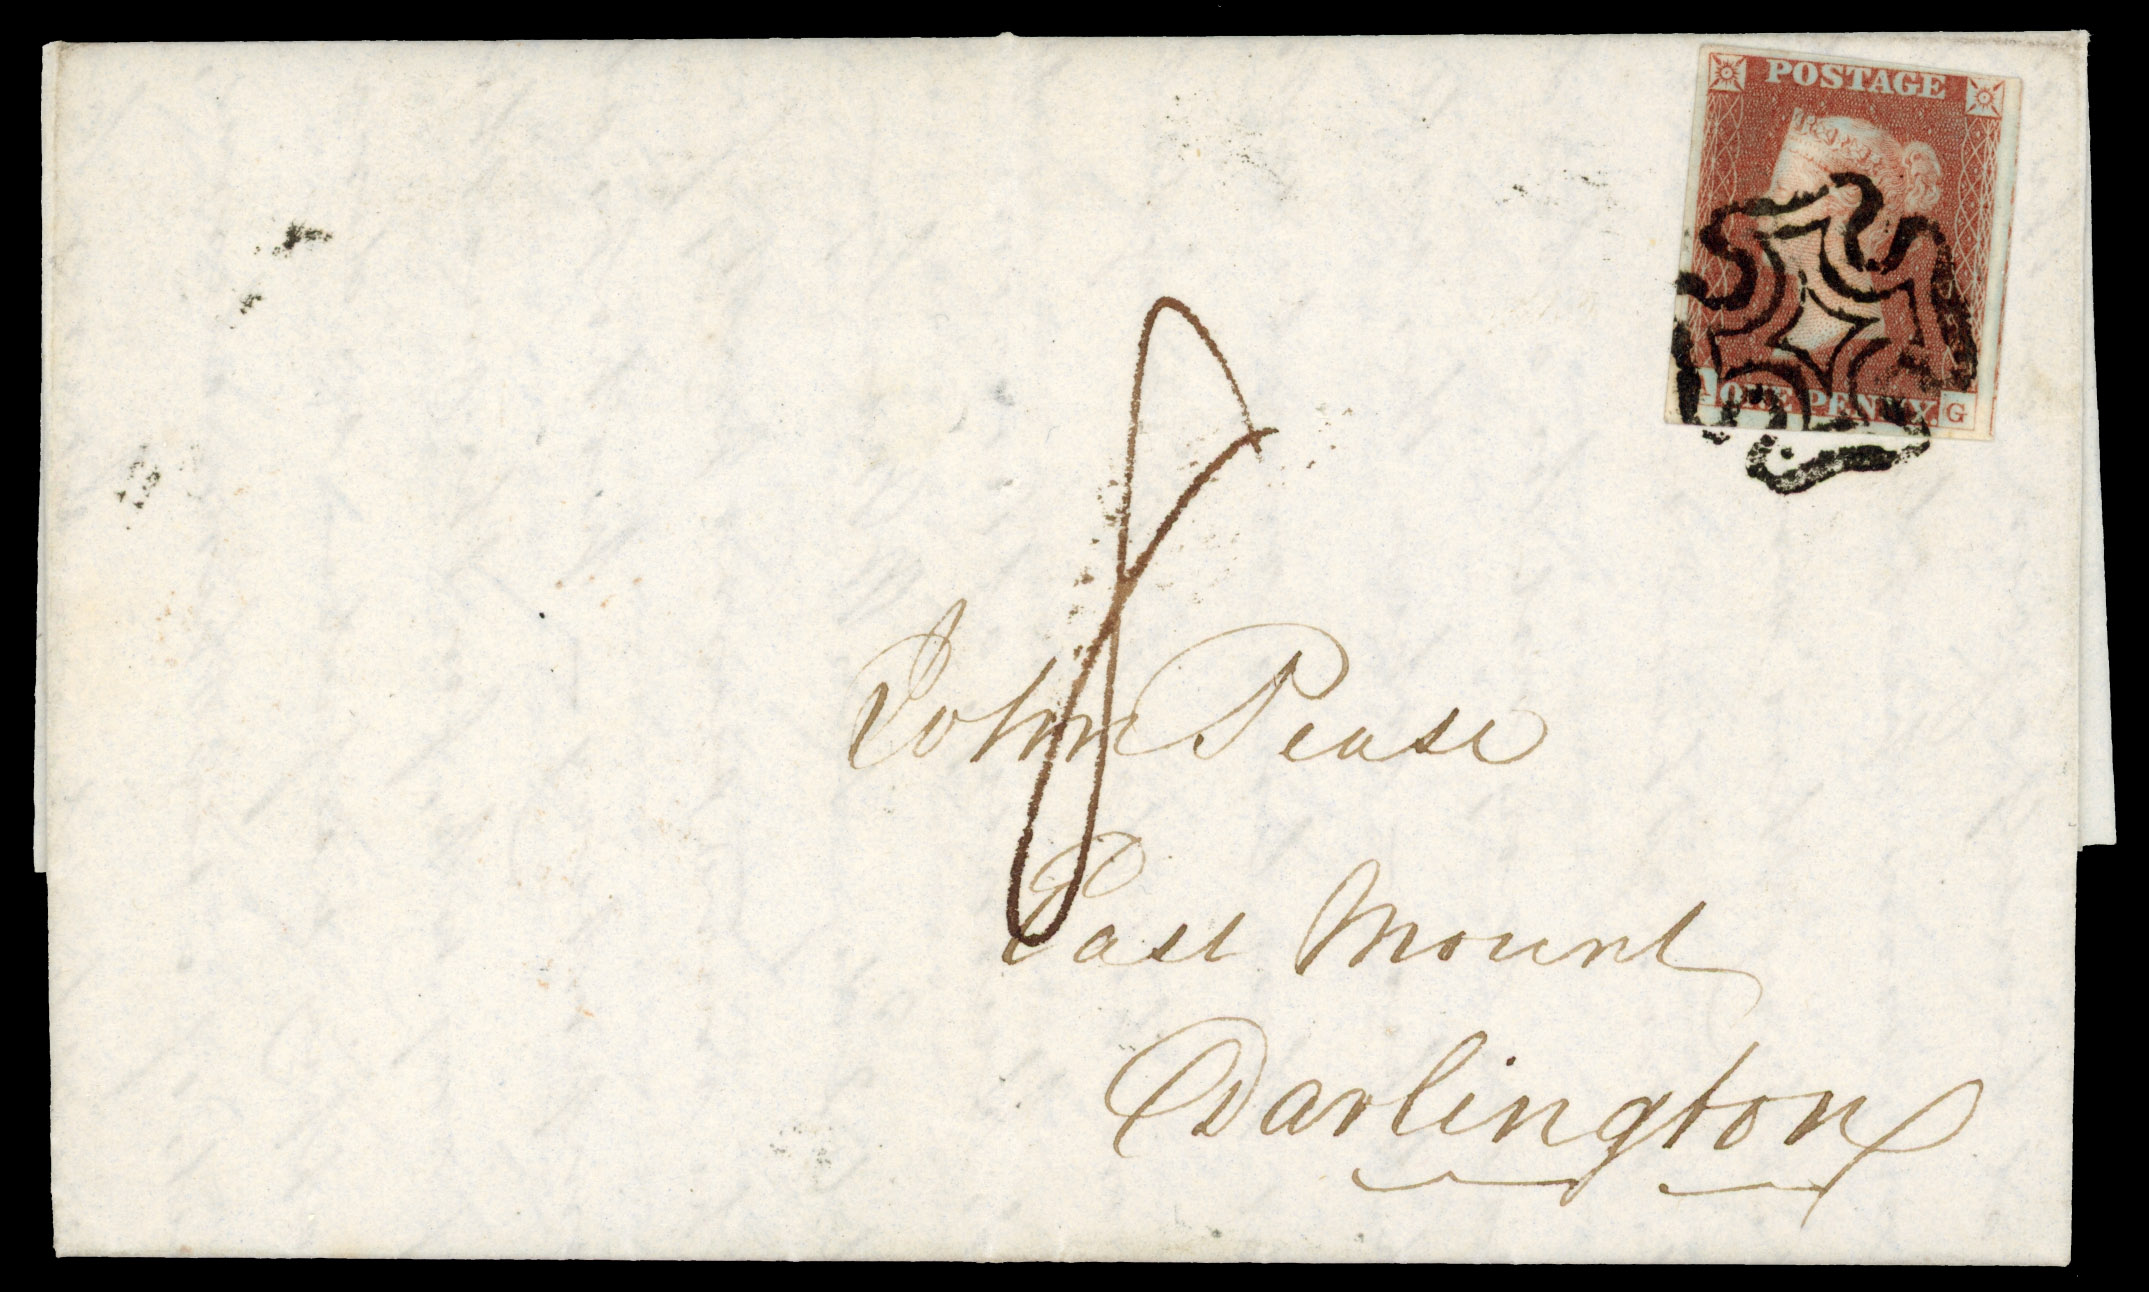 POSTAGE
ONE PENNY
G
8
John Pease
East Mount
Darlington